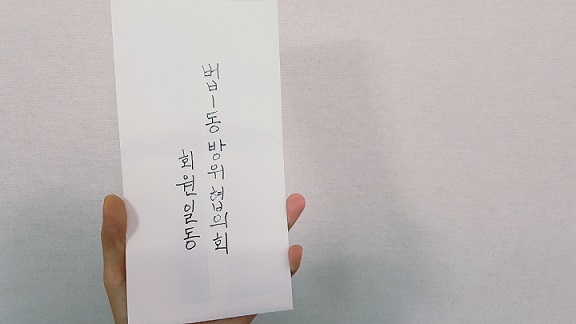 법1동 방위협의회
회원일동